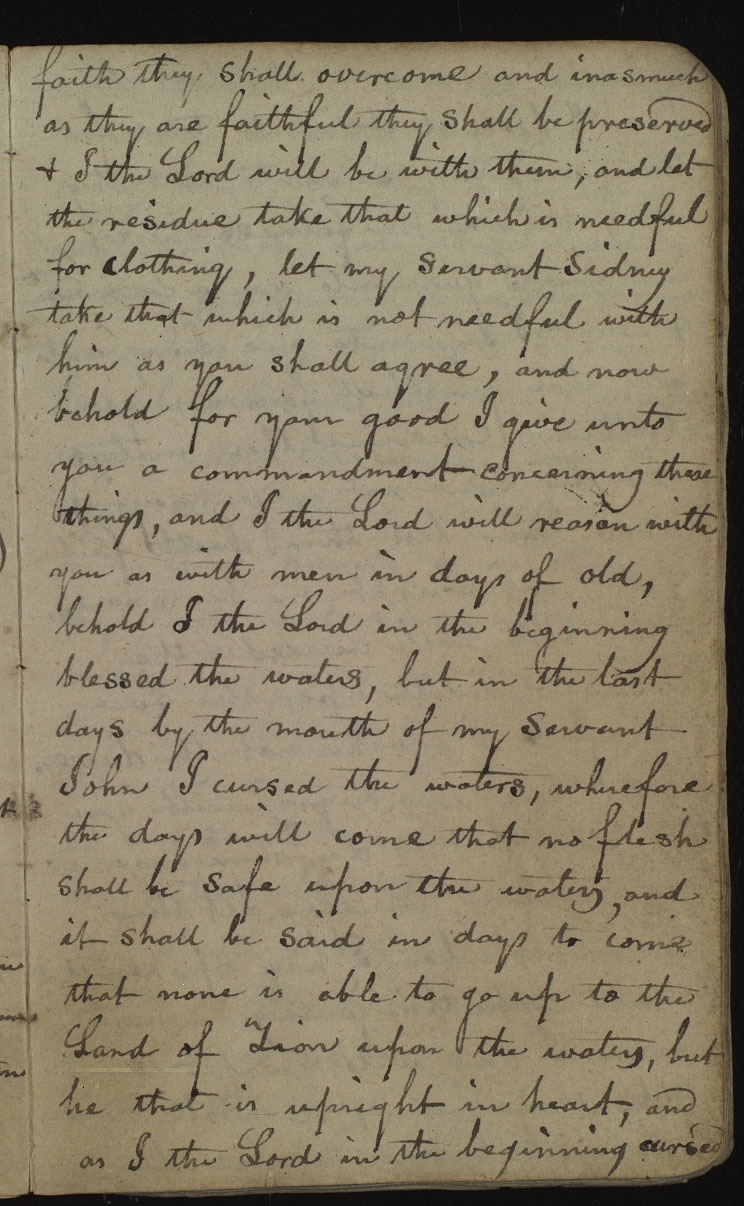 faith they shall overcome and inasmuch
as they are faithful they shall be preserved
& I the Lord will be with them, and let
the residue take that which is needful
for clothing, let my Servant Sidney
take that which is not needful with
him as you shall agree, and now
behold for your good I give unto
you a commandment concerning these
things, and I the Lord will reason with
you as with men in days of old,
behold I the Lord in the beginning
blessed the waters, but in the last
days by the mouth of my Servant
John I cursed the waters, wherefore
the days will come that no flesh
shall be safe upon the waters, and
it shall be said in days to come
that none is able to go up to the
Land of Zion upon the waters, but
he that is upright in heart, and
as I the Lord in the beginning cursed